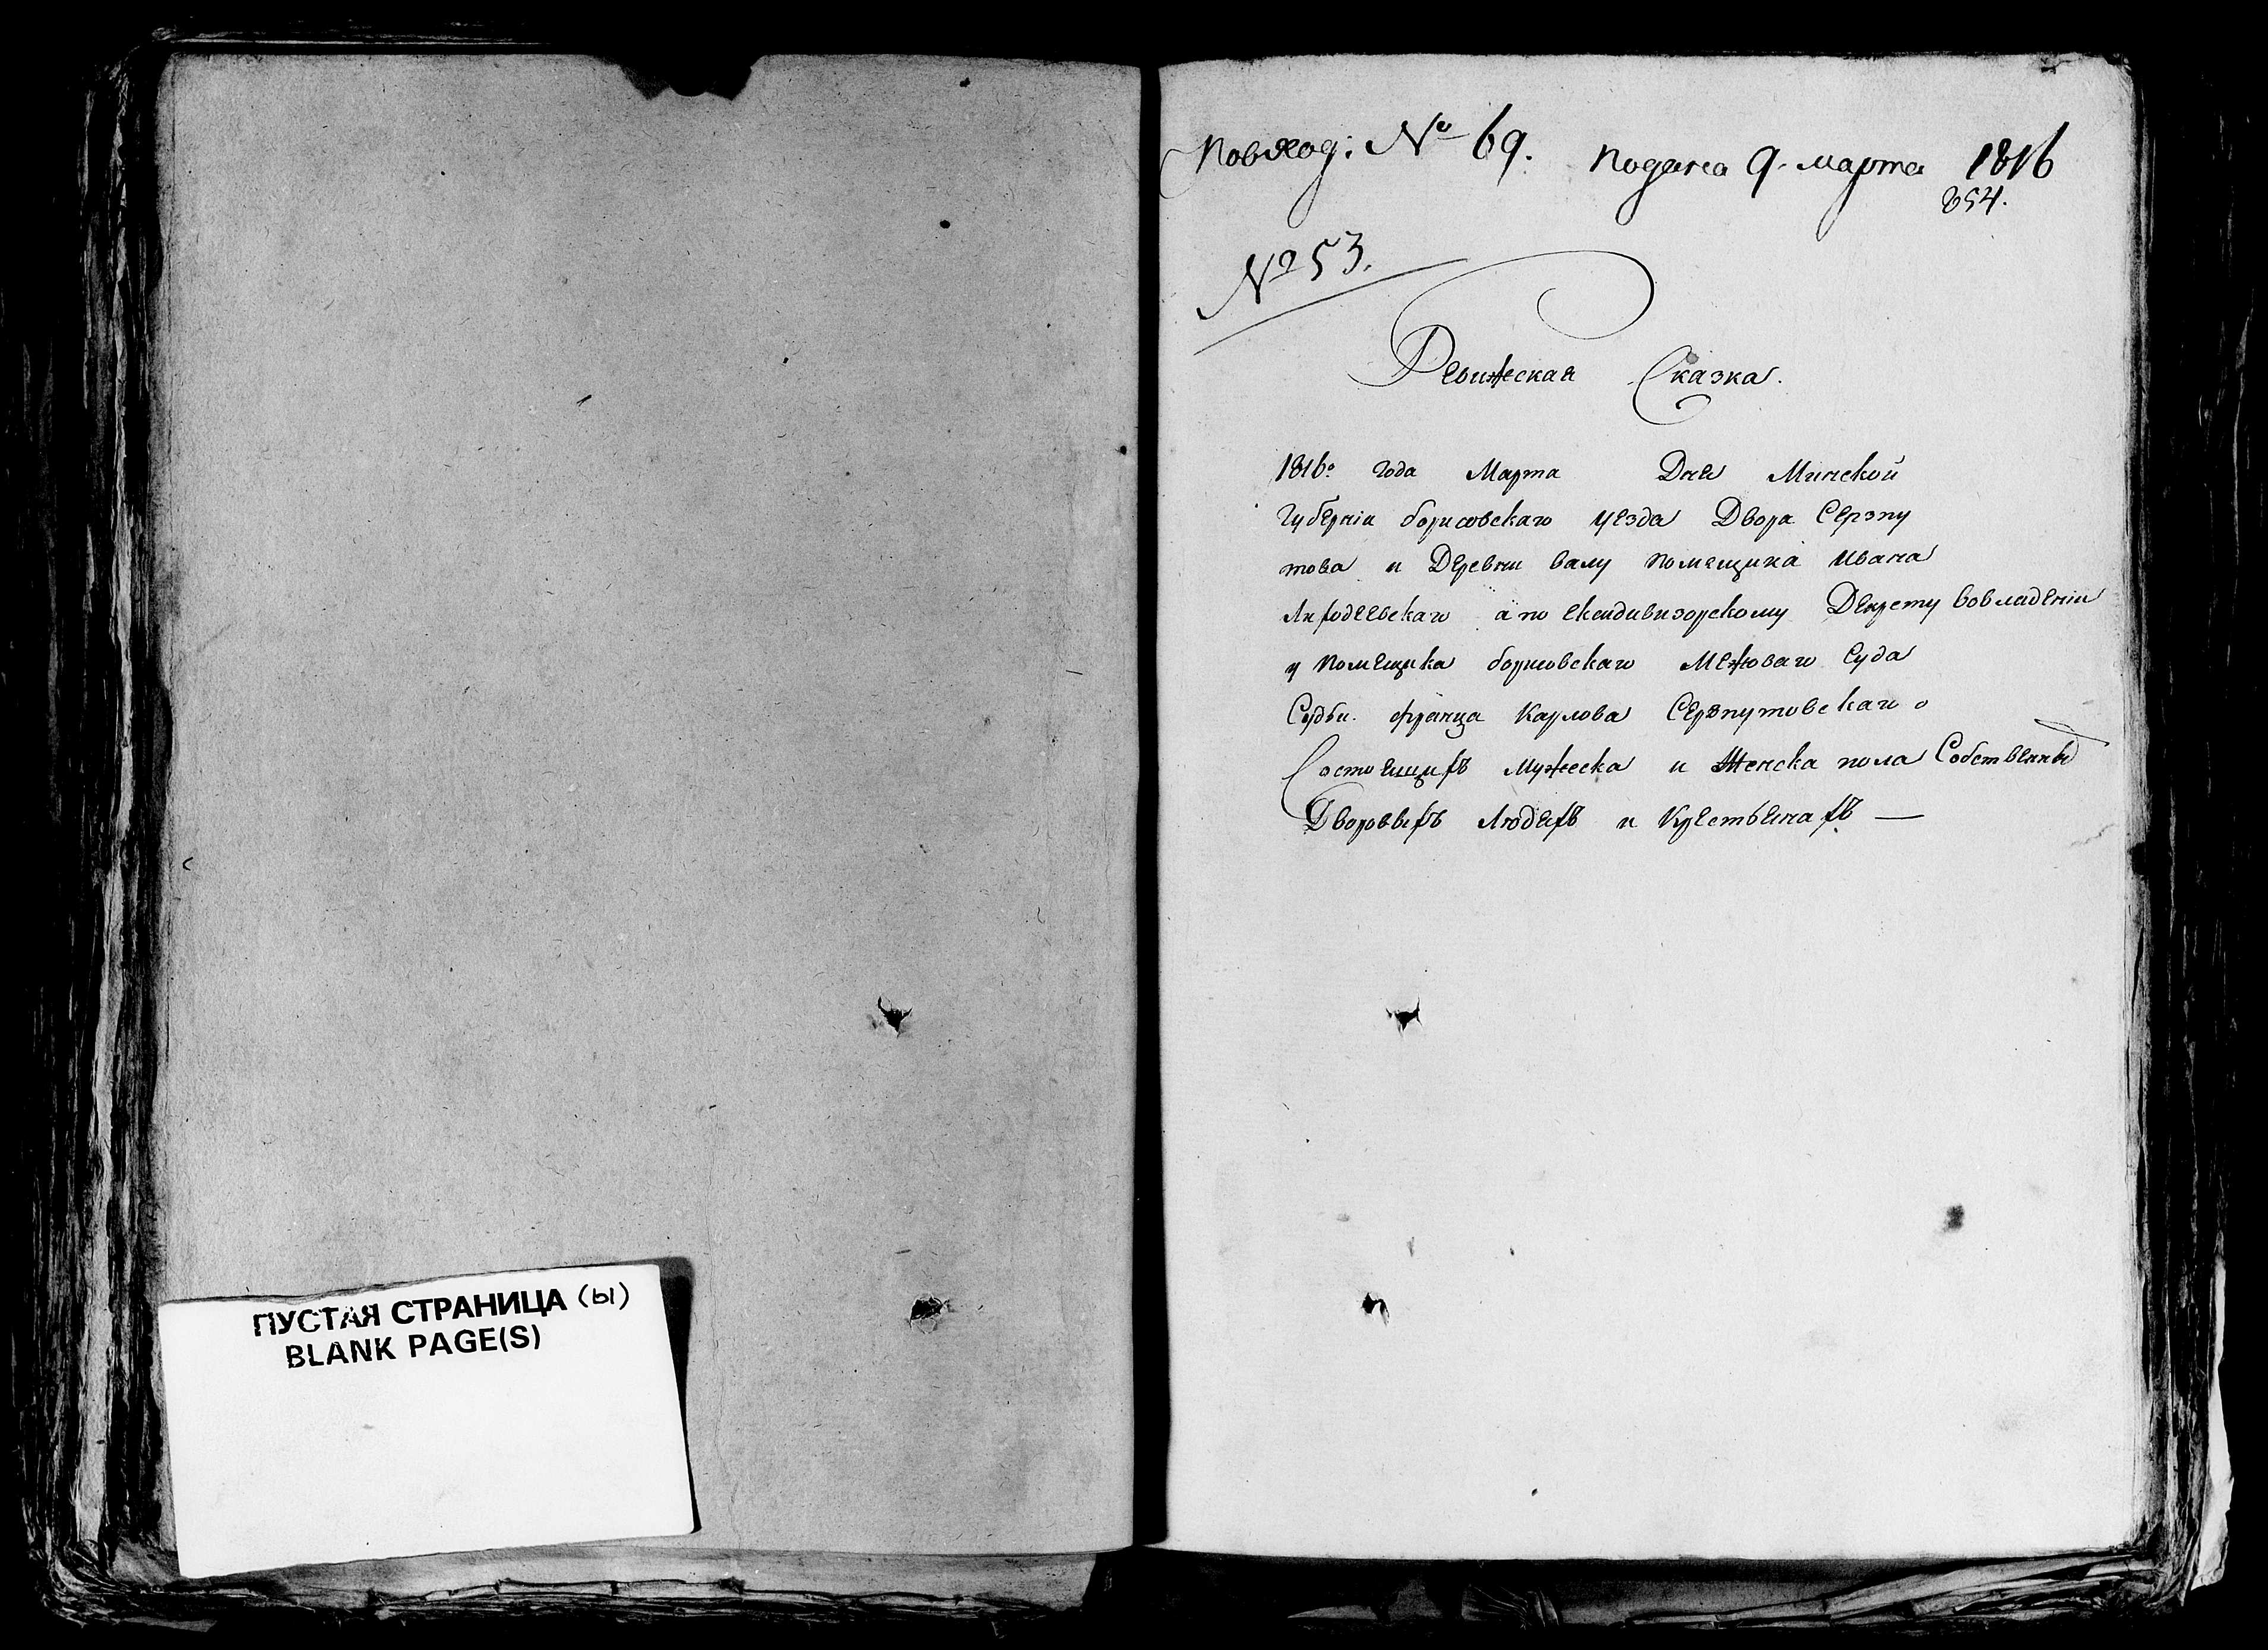 ПУСТАЯ СТРАНИЦА (ы)
BLANK PAGE(S)
По вход: № 69. Подана 9. марта 1816
254.
№ 53.
Ревижская Сказка.
1816о года Марта Дня Минской
Губерніи борисовскаго уезда Двора Серэпу
това и Деревни валу помещика Ивана
а по ексидивизорскому Декрету во владеніи
у помещика борисовскаго Межоваго Суда
Судьи Франца Карлова Серэпутовскаго о
Состоящихъ Мужеска и Женска пола Собственны
Дворовыхъ Людяхъ и Крестьянахъ —